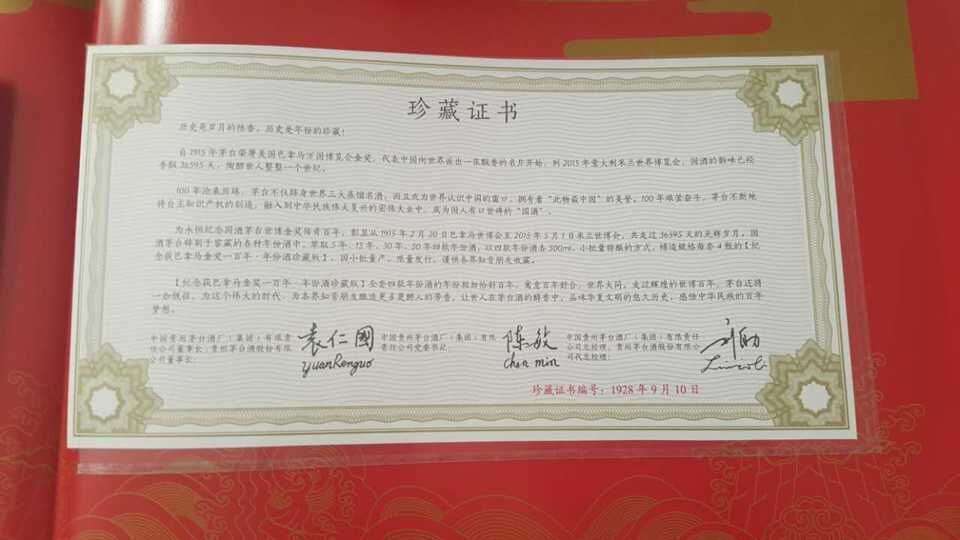 珍藏证书
历史是岁月的陈香，历史是年份的珍藏！
自1915年茅台荣膺美国巴拿马万国博览会金奖，代表中国向世界派出一张飘香的名片开始，到2015年意大利米兰世界博览会，国酒的韵味已经
香飘36595天，陶醉世人整整一个世纪。
100年沧桑照珠，茅台不仅跻身世界三大蒸馏名酒，而且成为世界认识中国的窗口，拥有着“此物最中国”的美誉。100年艰苦奋斗，茅台不断地
将自主知识产权的创造，融入到中华民族伟大复兴的宏伟大业中，成为国人有口皆碑的“国酒”。
为永恒纪念国酒茅台世博金奖传奇百年，彰显从1915年2月20日巴拿马世博会至2015年5月1日米兰世博会，共走过36595天的光辉岁月，国
酒茅台特别于窖藏的各种年份酒中，萃取5年、15年、30年、50年四款年份酒，以四款年份酒各500ml，小批量特酿的方式，缔造规格每套4瓶的【纪
念获巴拿马金奖一百年·年份酒珍藏版】，因小批量产，限量发行，谨供各界知音朋友收藏。
【纪念获巴拿马金奖一百年·年份酒珍藏版】全套四款年份酒的年份相加恰好百年，寓意百年好合，世界大同。走过辉煌的世博百年，茅台还将
一如既往，为这个伟大的时代，为各界知音朋友酿造更多更醉人的芳香，让世人在茅台酒的醇香中，品味华夏文明的悠久历史，感怡中华民族的百年
梦想。
中国贵州茅台酒厂（集团）有限责
任公司董事长、贵州茅台酒股份有限
公司董事长：
袁仁國
YuanRenguo
中国贵州茅台酒厂（集团）有限
责任公司党委书记：
陈敏
Chen min
中国贵州茅台酒厂（集团）有限责任
公司总经理、贵州茅台酒股份有限公
司代总经理：
珍藏证书编号：1928年9月10日